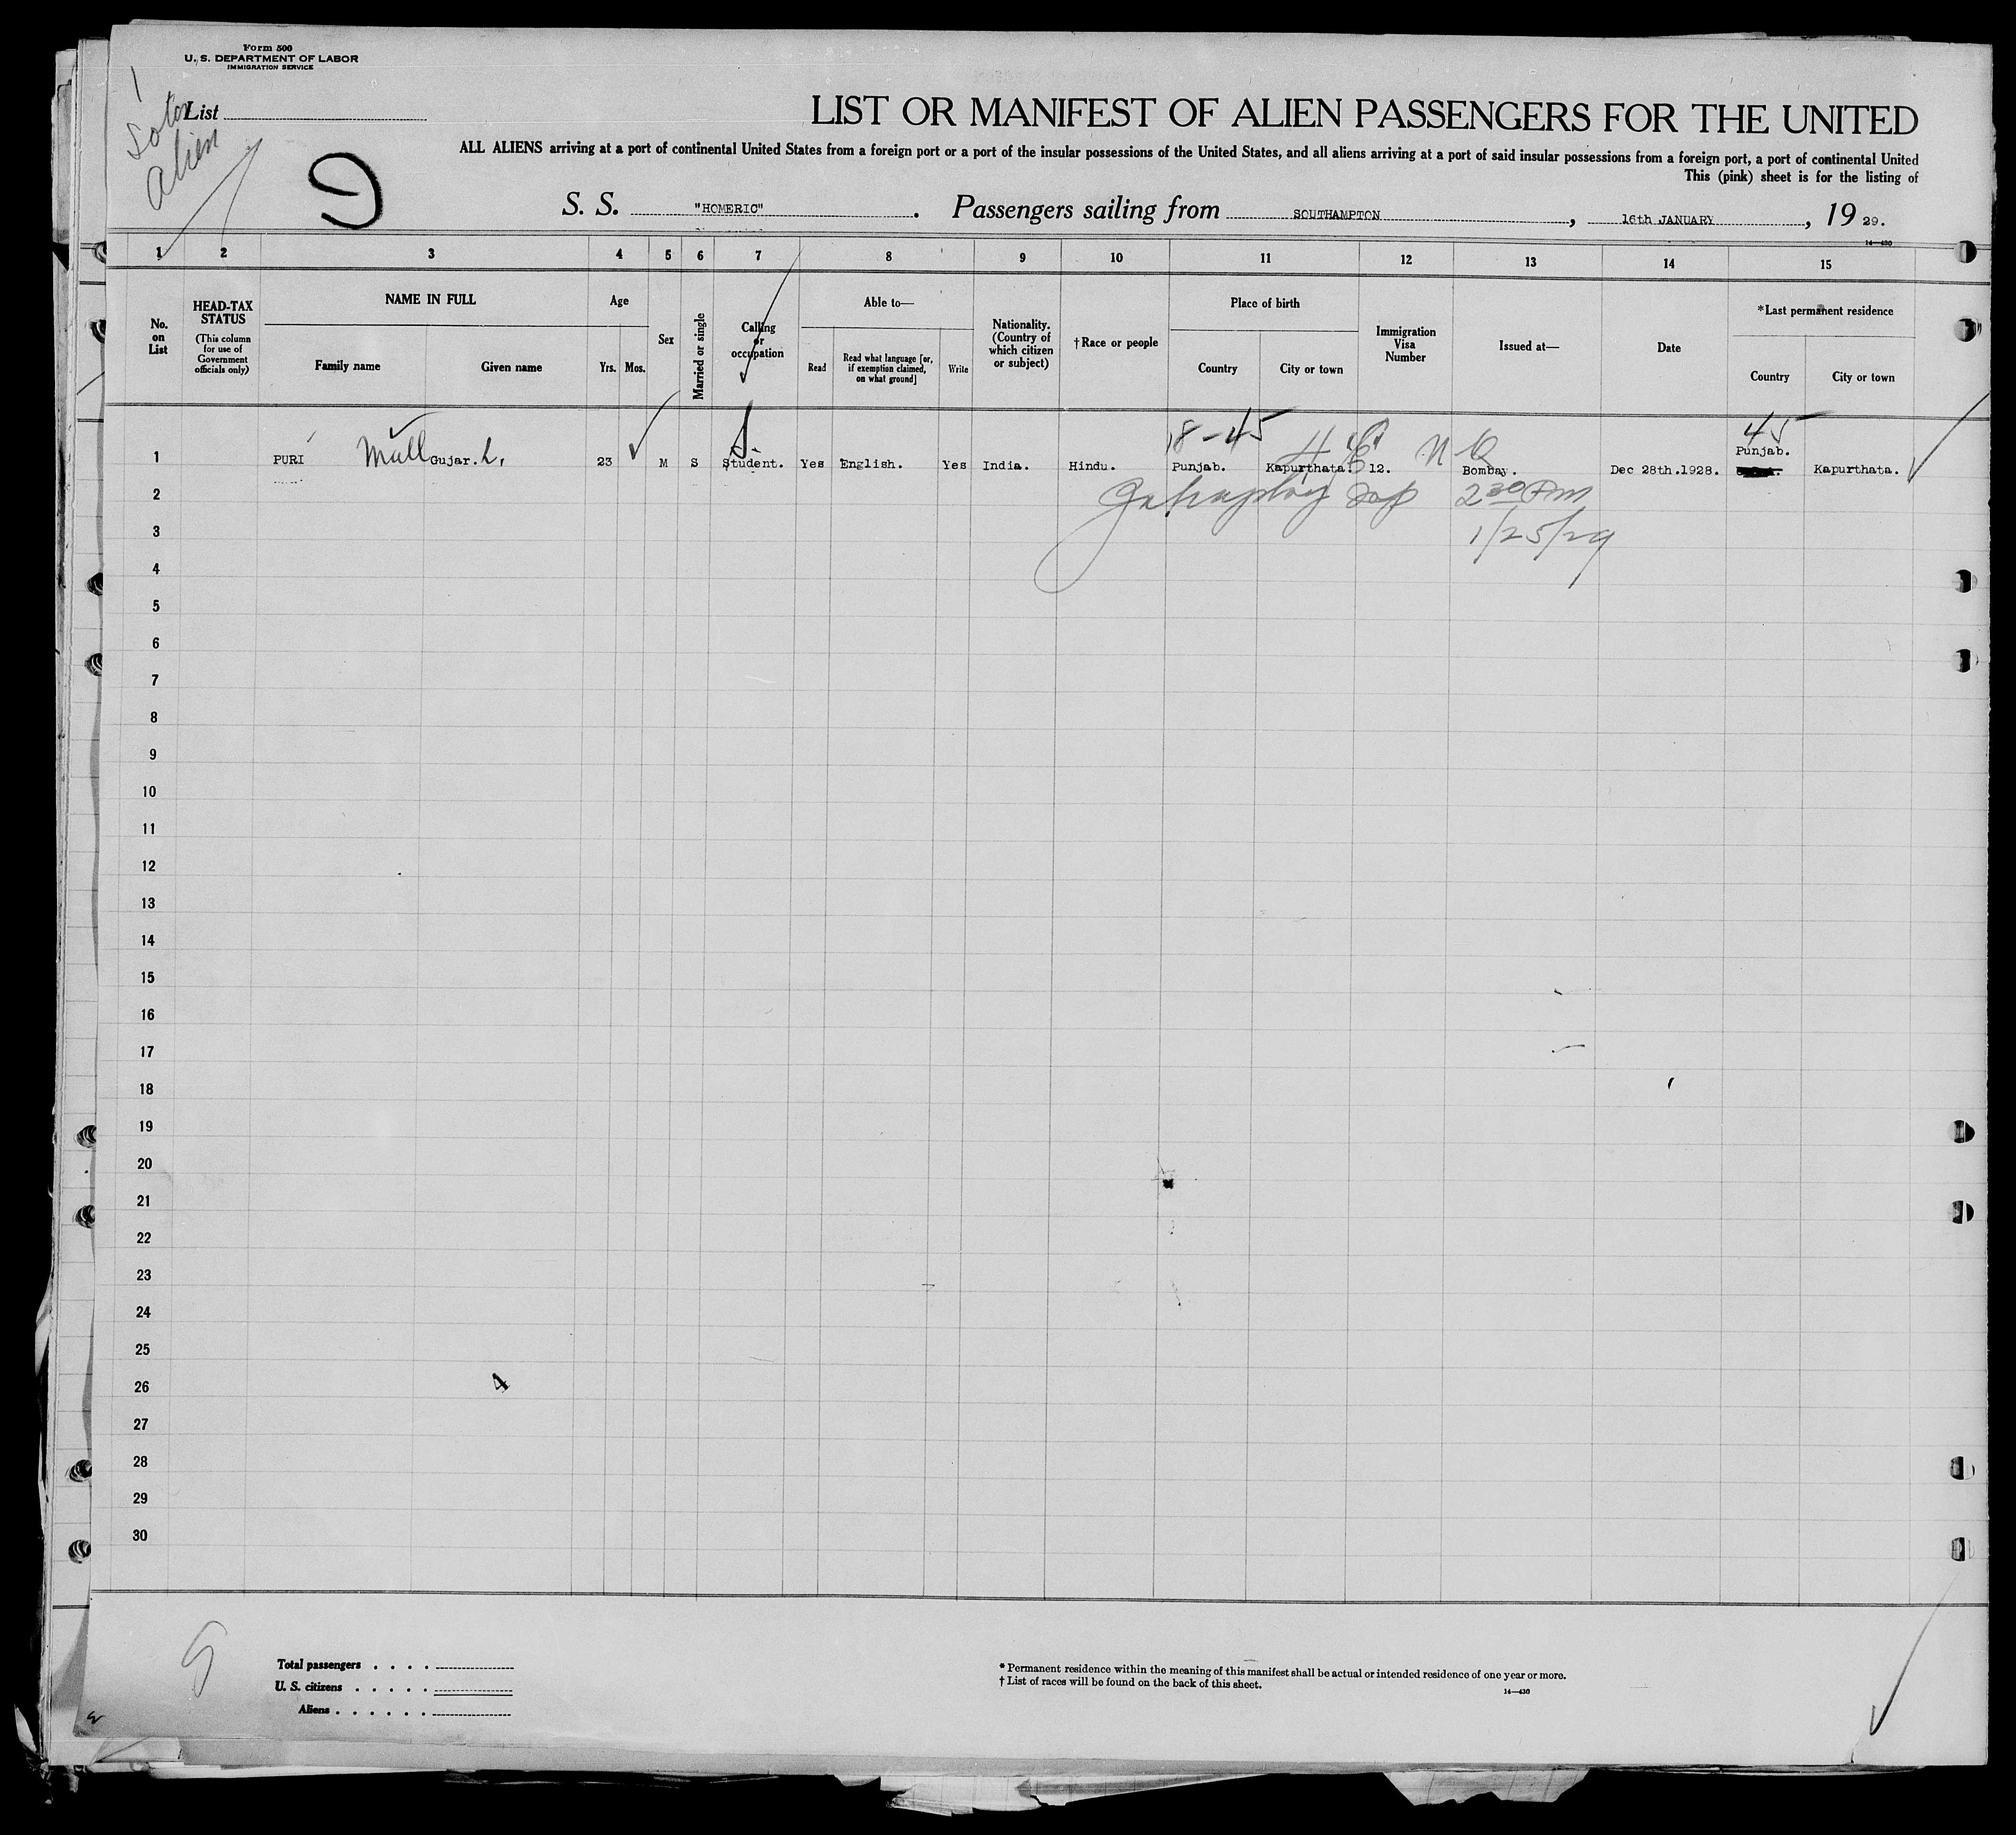 Form 500
U. S. DEPARTMENT OF LABOR
IMMIGRATION SERVICE
1
Soton
Alien
List
LIST OR MANIFEST OF ALIEN PASSENGERS FOR THE UNITED
ALL ALIENS arriving at a port of continental United States from a foreign port or a port of the insular possessions of the United States, and all aliens arriving at a port of said insular possessions from a foreign port, a port of continental United
This (pink) sheet is for the listing of
S. S. "HOMERIC". Passengers sailing from SOUTHAMPTON, 16th JANUARY, 19 29.
14—430
1 2 3 4 5 6 7 8 9 10 11 12 13 14 15
No. on List
HEAD-TAX STATUS
(This column for use of Government officials only)
NAME IN FULL
Family name
Given name
Age
Yrs.
Mos.
Sex
Married or single
Calling or occupation
Able to—
Read
Read what language [or, if exemption claimed, on what ground]
Write
Nationality. (Country of which citizen or subject)
†Race or people
Place of birth
Country
City or town
Immigration Visa Number
Issued at—
Date
*Last permanent residence
Country
City or town
18-45
45
1 PURI Mull Gujar. L. 23 M S Student. Yes English. Yes India. Hindu. Punjab. Kapurthata. 12. Bombay. Dec 28th.1928. Punjab. Kapurthata.
2 2 30 Pm
3 1/25/29
4
5
6
7
8
9
10
11
12
13
14
15
16
17
18
19
20
21
22
23
24
25
26
27
28
29
30
Total passengers
U. S. citizens
Aliens
* Permanent residence within the meaning of this manifest shall be actual or intended residence of one year or more.
† List of races will be found on the back of this sheet.
14—430